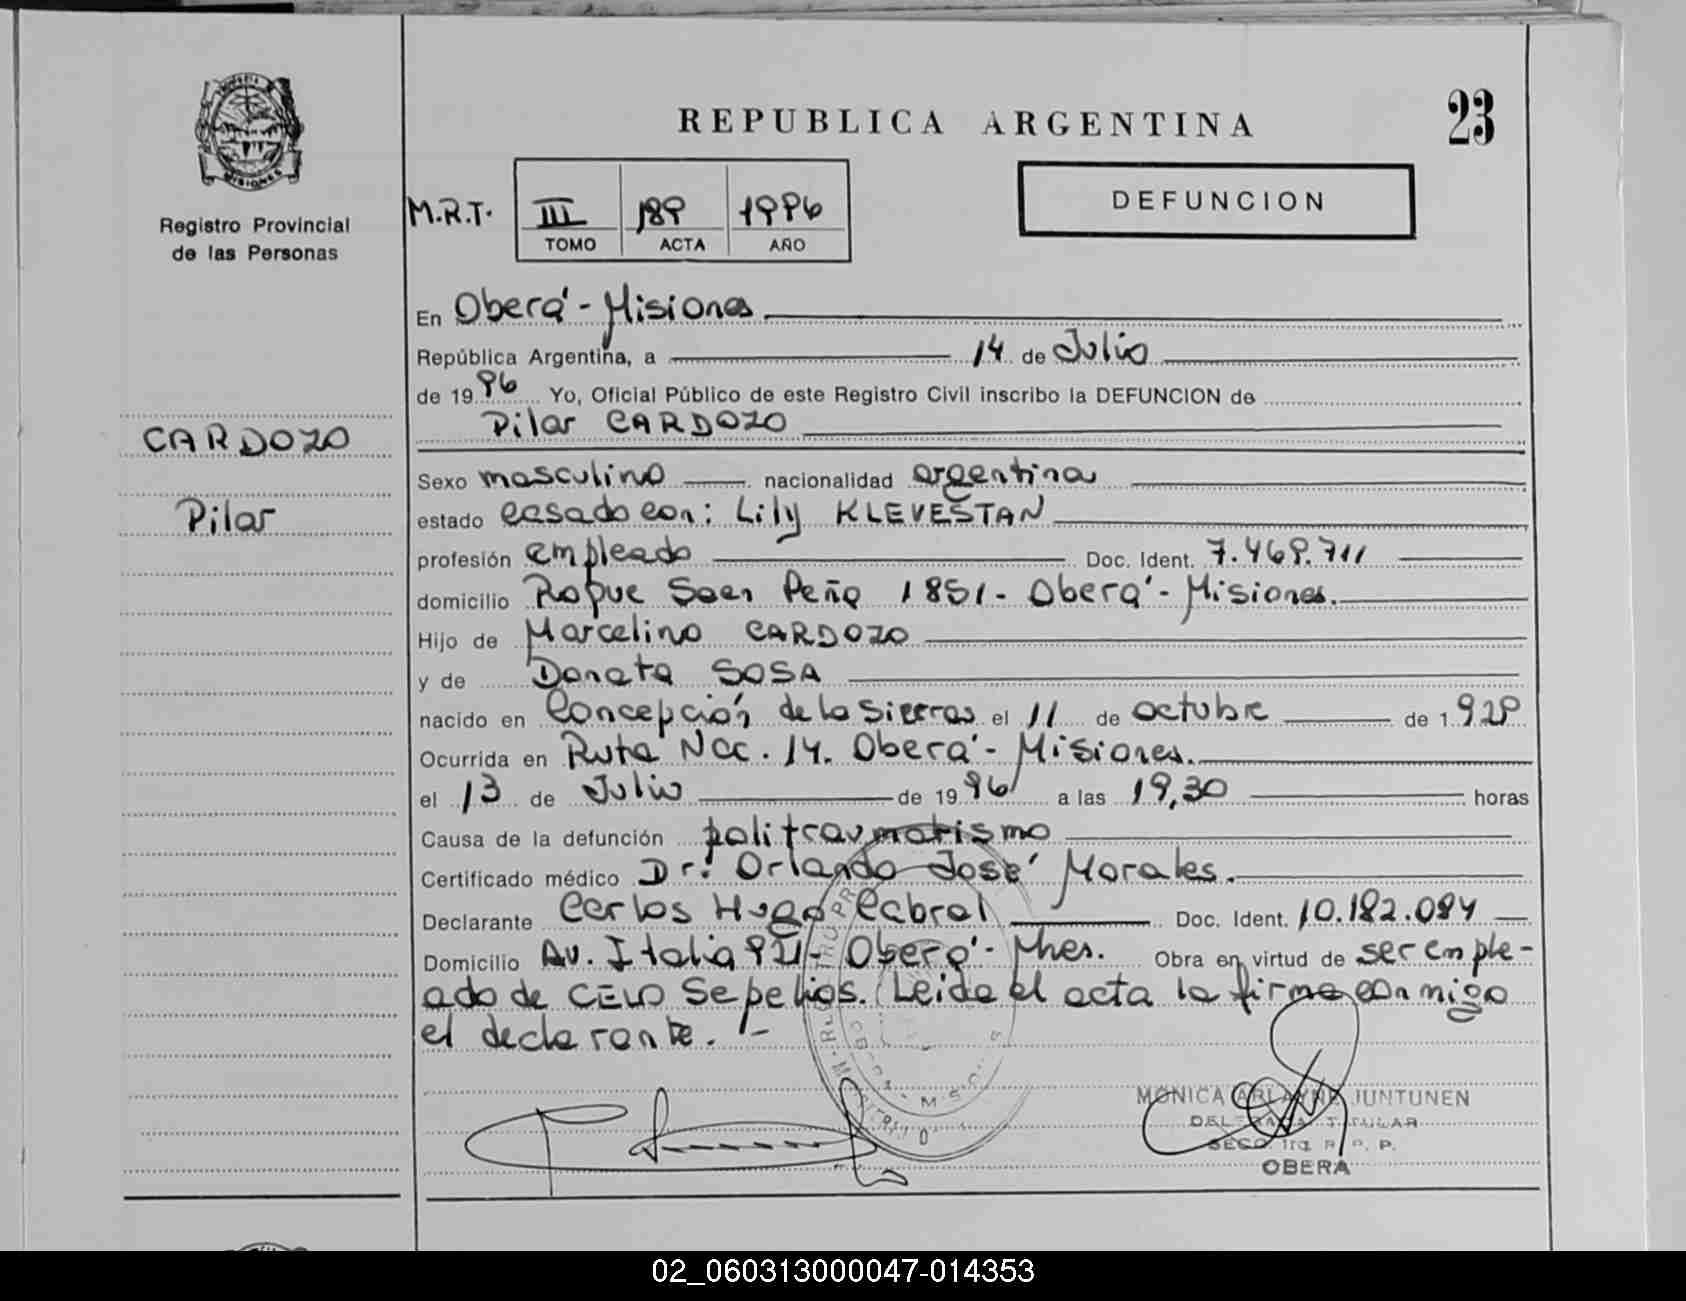 MISIONES
Registro Provincial
de las Personas
CARDOZO
Pilar
REPUBLICA ARGENTINA
23
M.R.T. III 189 1996
TOMO ACTA AÑO
DEFUNCION
En Oberá - Misiones
República Argentina, a 14 de Julio
de 1996 Yo, Oficial Público de este Registro Civil inscribo la DEFUNCION de
Pilar CARDOZO
Sexo masculino nacionalidad argentina
estado casado con: Lily KLEVESTAN
profesión empleado Doc. Ident. 7.469.711
domicilio Roque Saen Peña 1851 - Oberá - Misiones.
Hijo de Marcelino CARDOZO
y de Donata SOSA
nacido en Concepción de la Sierras el 11 de octubre de 1.929
Ocurrida en Ruta Nac. 14. Oberá - Misiones.
el 13 de Julio de 1996 a las 19,30 horas
Causa de la defunción politraumatismo
Certificado médico Dr. Orlando José Morales.
Declarante Carlos Hugo Cabral Doc. Ident. 10.182.084
Domicilio Av. Italia - Oberá - Mnes. Obra en virtud de ser emple-
ado de CELO Sepelios. Leida el acta la firma conmigo
el declarante. -
MONICA ARLAYNE JUNTUNEN
TITULAR
OBERA
02_060313000047-014353